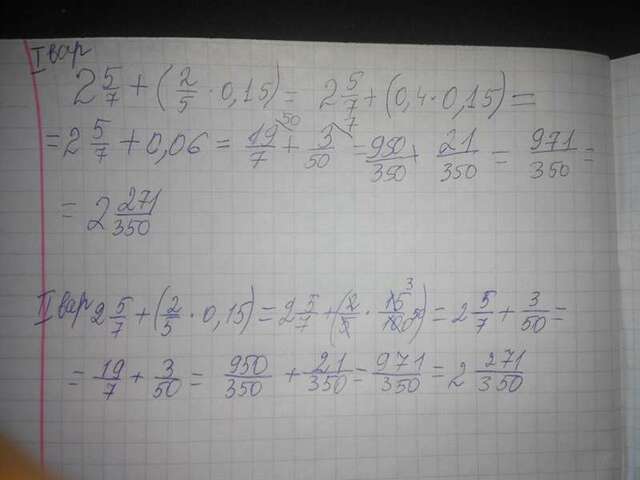 I вар
2 5/7 + (2/5 · 0,15) = 2 5/7 + (0,4 · 0,15) =
= 2 5/7 + 0,06 = 19/7 50 + 3/50 7 = 950/350 + 21/350 = 971/350 =
= 2 271/350
II вар 2 5/7 + (2/5 · 0,15) = 2 5/7 + (2/5 · 15 3/100 50) = 2 5/7 + 3/50 =
= 19/7 + 3/50 = 950/350 + 21/350 = 971/350 = 2 271/350